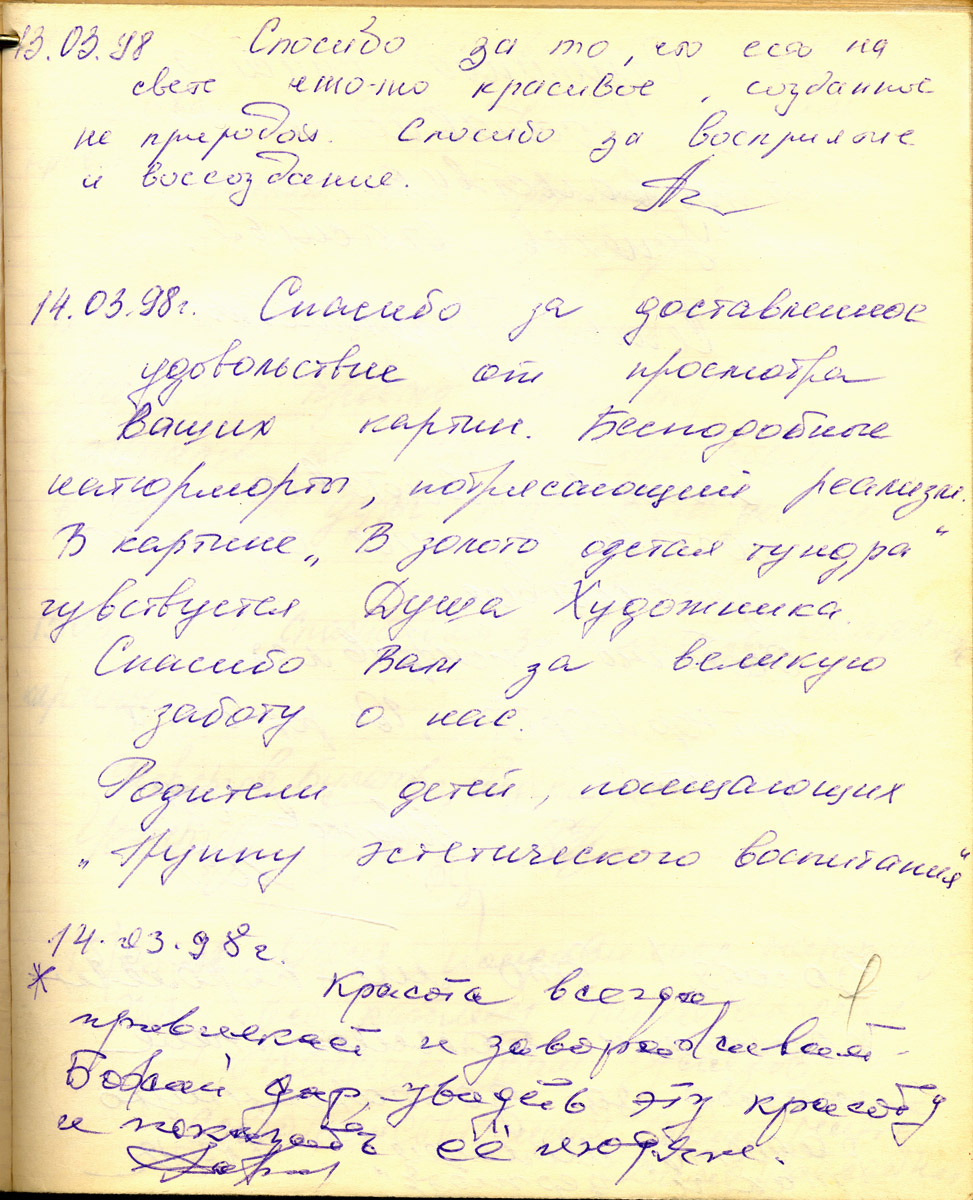 13.03.98 Спасибо за то, что есть на
свете что-то красивое, созданное
не природой. Спасибо за восприятие
и воссоздание.
14.03.98г. Спасибо за доставленное
удовольствие от просмотра
Ваших картин. Бесподобные
натюрморты, потрясающий реализм.
В картине „В золото одетая тундра“
чувствуется Душа Художника.
Спасибо Вам за великую
заботу о нас.
Родители детей, посещающих
„Группу эстетического воспитания“
14.03.98г.
* Красота всегда
привлекает и завораживает.
Божий дар, увидеть эту красоту
и показать её людям.